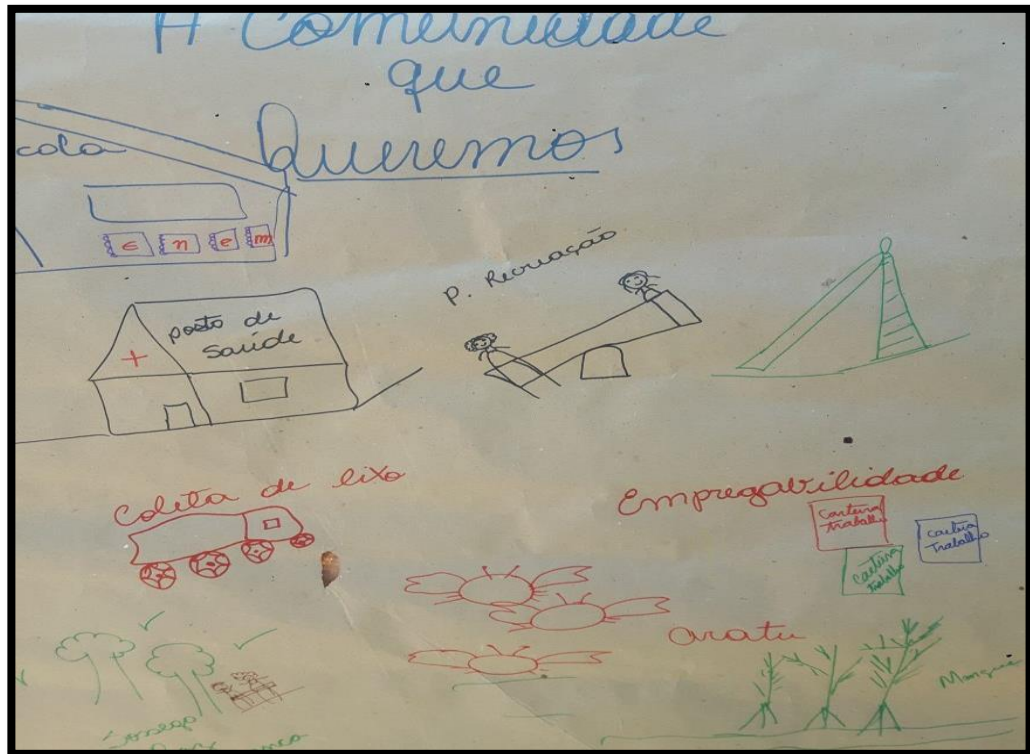 A Comunidade
que
Queremos
cola
E n e m
P. Recreação
posto de
Saúde
Coleta de lixo
Empregabilidade
carteira
trabalho
carteira
trabalho
carteira
trabalho
aratu
Mangue